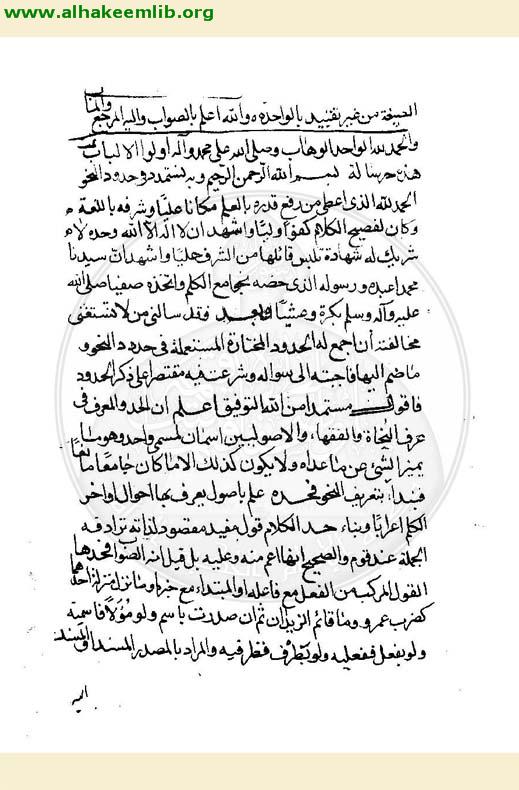 www.alhakeemlib.org
الصيغة من غير تقييد بالواحدة والله اعلم بالصواب واليه المرجع والماب
والحمد لله الواحد الوهاب وصلى الله على محمد وآله اولوا الالباب
هذه رسالة بسم الله الرحمن الرحيم وبه نستمد حدود النحو
الحمد لله الذى اعطى من رفع قدره بالعلم مكانا عليا وشرفه باللغة
وكان لفصيح الكلام كفوا وليا واشهد ان لا اله الا الله وحده لا
شريك له شهادة تلبس قائلها من الشرف حليا واشهد ان سيدنا
محمدا عبده ورسوله الذى خصه بجوامع الكلم واتخذه صفيا صلى الله
عليه وآله وسلم بكرة وعشيا وبعد فقد سالنى من لا تستغنى
مخالفته ان اجمع له الحدود المختارة المستعملة فى حدود النحو و
ما ضم اليها فاجبته الى سواله وشرعت فيه مقتصرا على ذكر الحدود
فاقول مستمدا من الله التوفيق اعلم ان الحد والمعرف فى
عرف النحاة والفقهاء والاصوليين اسمان لمسمى واحد وهو ما
يميز الشئ عن ما عداه ولا يكون كذلك الا ما كان جامعا مانعا
فنبدا بتعريف النحو فحده علم باصول يعرف بها احوال اواخر
الكلم اعرابا وبناء حد الكلام قول مفيد مقصود لذاته ترادفه
الجملة عند قوم والصحيح انها اعم منه وعليه بل قيل انه الصواب فحدها
القول المركب من الفعل مع فاعله او المبتداء مع خبره او ما نزل منزلة احدهما
كضرب عمرو وما قائم الزيدان ثم ان صدرت باسم ولو مؤولا فاسمية
ولو بفعل ففعليه ولو بظرف فظرفيه والمراد بالمصدر المسند او المسند
اليه